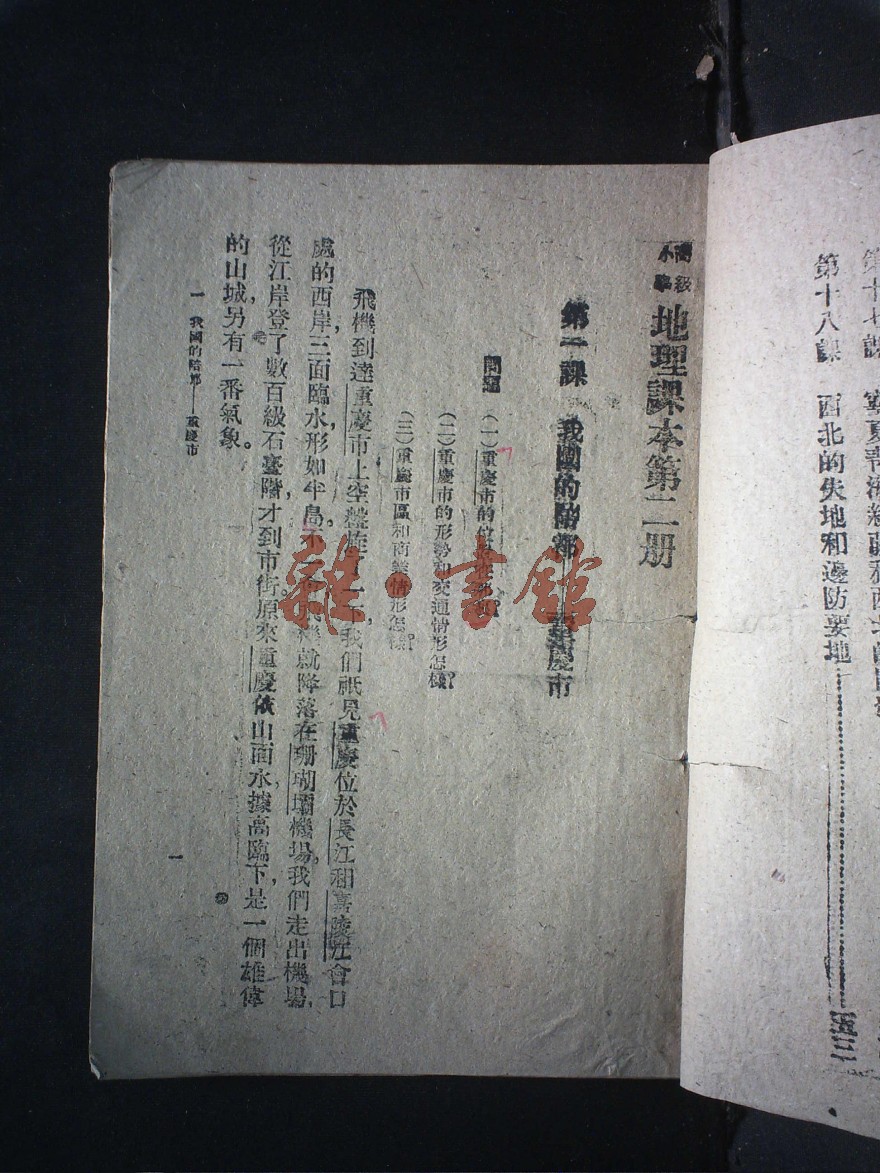 第十八課　西北的失地和邊防要地……五三
高級小學 地理課本第二册
第一課　我國的陪都——重慶市
問題　(一)重慶市的位置在
(二)重慶市的形勢和交通情形怎樣？
(三)重慶市區和商業情形怎樣？
飛機到達重慶市上空盤旋了一下，我們祇見重慶位於長江和嘉陵江會口
處的西岸，三面臨水，形如半島。不就降落在珊瑚壩機場。我們走出機場，
從江岸登了數百級石臺階，才到市街。原來重慶依山面水，據高臨下，是一個雄偉
的山城，另有一番氣象。
一　我國的陪都——重慶市
一
雜·書館